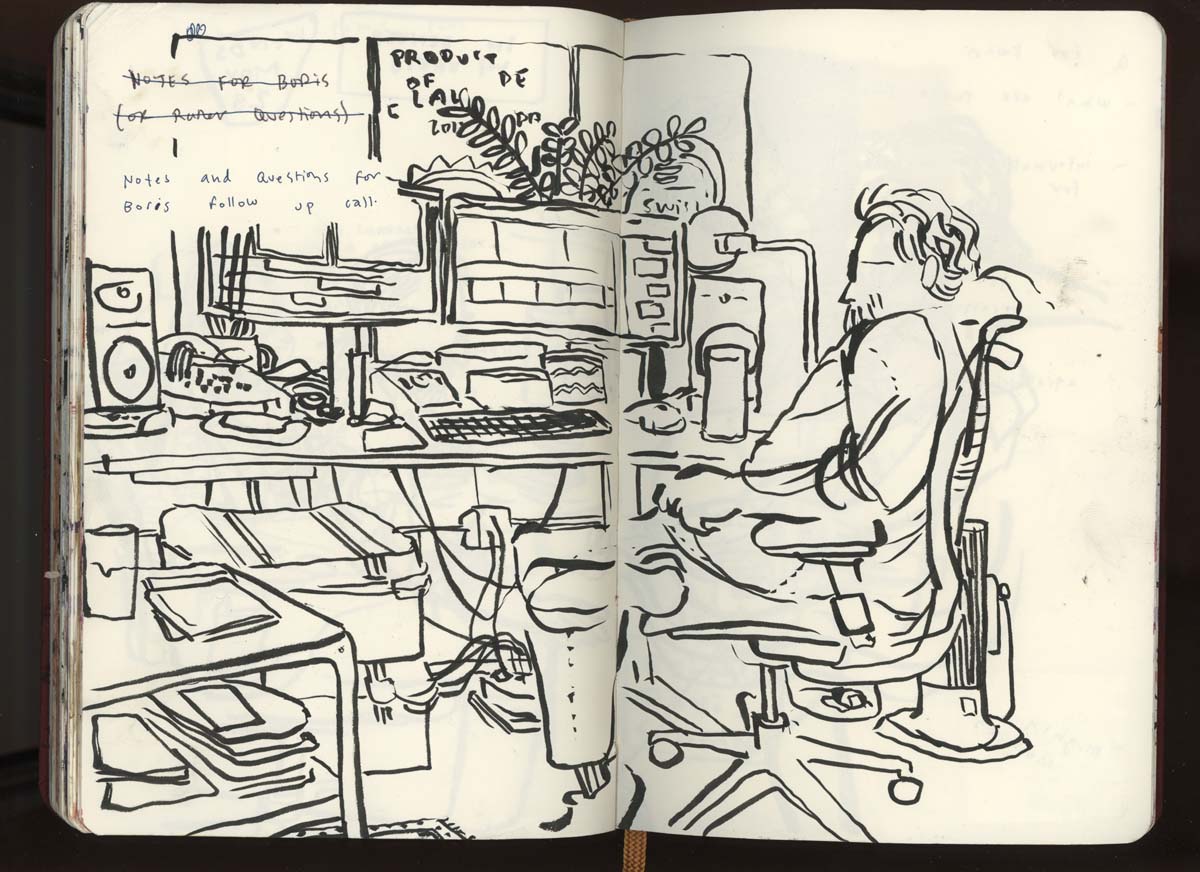 NOTES FOR BORIS
(or Rather Questions)
Notes and Questions for
Boris follow up call.
PRODUCT
OF DE
LAW
2017
SWISS